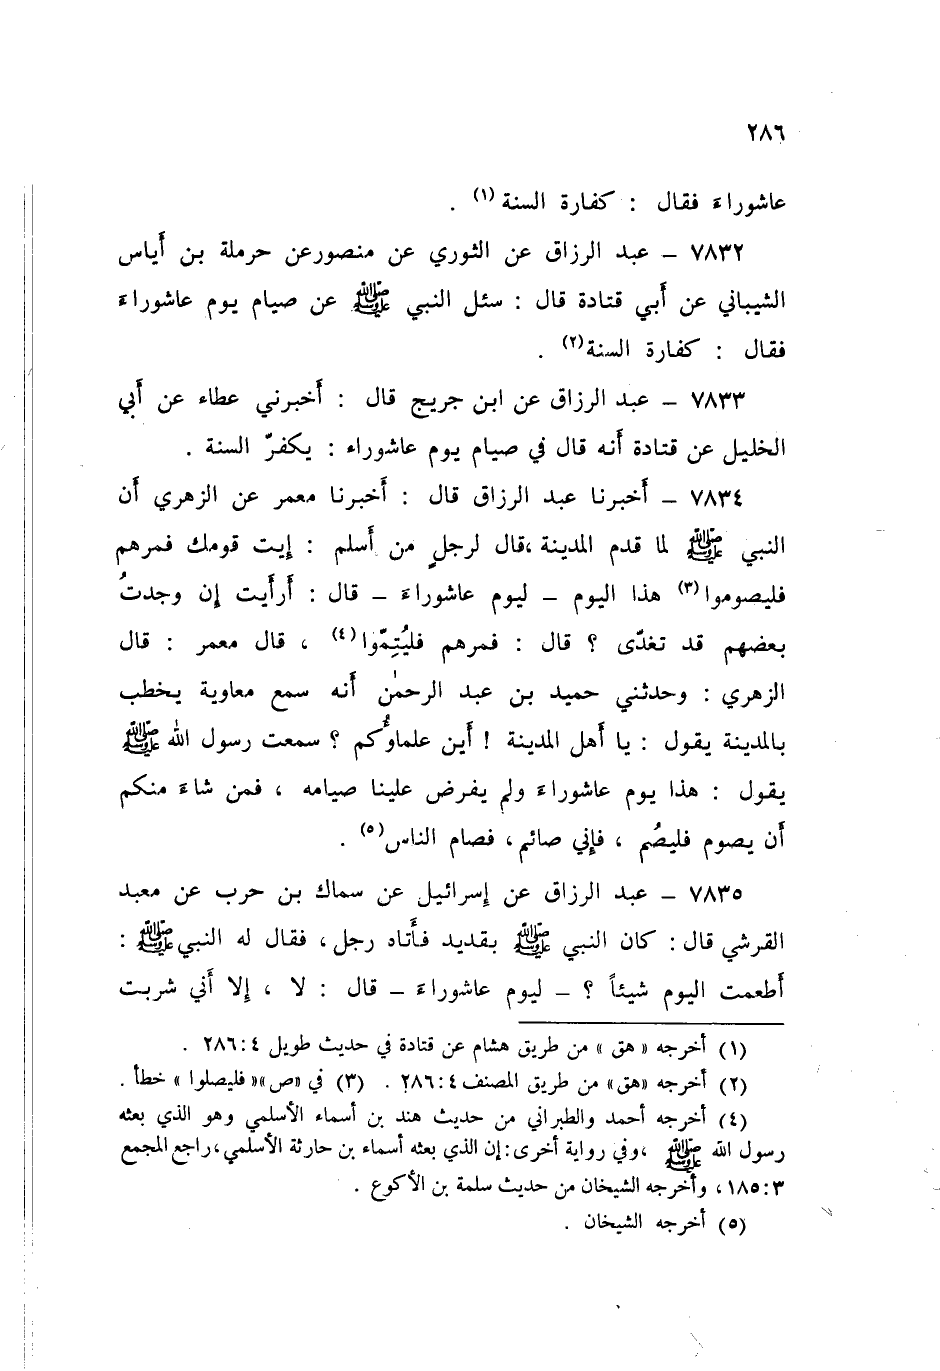 ٢٨٦
عاشوراءَ فقال : كفارة السنة (١) .
٧٨٣٢ – عبد الرزاق عن الثوري عن منصورعن حرملة بن أَياس
الشيباني عن أَبي قتادة قال : سئل النبي ﷺ عن صيام يوم عاشوراءَ
فقال : كفارة السنة(٢) .
٧٨٣٣ – عبد الرزاق عن ابن جريج قال : أَخبرني عطاء عن أَبي
الخليل عن قتادة أَنه قال في صيام يوم عاشوراء : يكفرّ السنة .
٧٨٣٤ – أَخبرنا عبد الرزاق قال : أَخبرنا معمر عن الزهري أَن
النبي ﷺ لما قدم المدينة ،قال لرجلٍ من أَسلم : إِيت قومك فمرهم
فليصوموا(٣) هذا اليوم – ليوم عاشوراءَ – قال : أَرأَيت إِن وجدتُ
بعضهم قد تغدّى ؟ قال : فمرهم فليُتِمّوا(٤) ، قال معمر : قال
الزهري : وحدثني حميد بن عبد الرحمٰن أَنه سمع معاوية يخطب
بالمدينة يقول : يا أَهل المدينة ! أَين علماوُّكم ؟ سمعت رسول الله ﷺ
يقول : هذا يوم عاشوراءَ ولم يفرض علينا صيامه ، فمن شاءَ منكم
أَن يصوم فليصُم ، فإِني صائم، فصام الناس(٥) .
٧٨٣٥ – عبد الرزاق عن إِسرائيل عن سماك بن حرب عن معبد
القرشي قال: كان النبي ﷺ بقديد فأَتاه رجل، فقال له النبي ﷺ :
أَطعمت اليوم شيئاً ؟ – ليوم عاشوراءَ – قال : لا ، إِلا أَني شربت
(١) أخرجه « هق » من طريق هشام عن قتادة في حديث طويل ٤ : ٢٨٦ .
(٢) أخرجه «هق» من طريق المصنف ٤ : ٢٨٦ . (٣) في «ص»« فليصلوا » خطأ .
(٤) أخرجه أحمد والطبراني من حديث هند بن أسماء الأسلمي وهو الذي بعثه
رسول الله ﷺ ،وفي رواية أخرى: إن الذي بعثه أسماء بن حارثة الأسلمي،راجع المجمع
٣ : ١٨٥، وأخرجه الشيخان من حديث سلمة بن الأكوع .
(٥) أخرجه الشيخان .